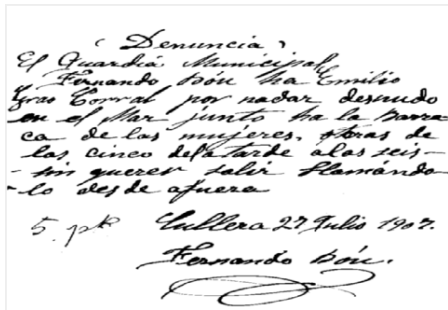 (Denuncia)
El Guardia Municipal,
Fernando Bóu ha Emilio
Grao Corral por nadar desnudo
en el Mar junto ha la Barra
ca de las mujeres, horas de
las cinco dela tarde alas seis-
-sin querer salir llamándo
-lo desde afuera
5. pts Cullera 27 Julio 1907.
Fernando Bóu.